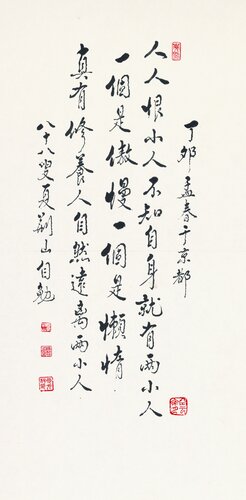 丁卯孟春于京都
人人恨小人不知自身就有两小人
一個是傲慢一個是懶惰
真有修養人自然遠离两小人
八十八叟夏荆山自勉